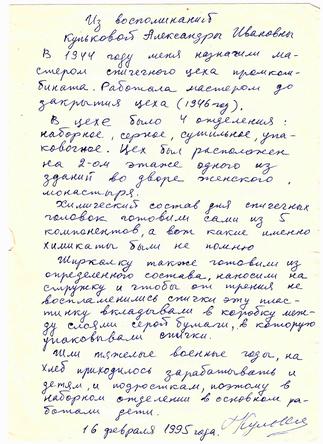 Из воспоминаний
Кульковой Александры Ивановны
В 1944 году меня назначили ма-
стером спичечного цеха промком-
бината. Работала мастером до
закрытия цеха (1946 год).
В цехе было 4 отделения:
наборное, серное, сушильное, упа-
ковочное. Цех был расположен
на 2-ом этаже одного из
зданий во дворе женского
монастыря.
Химический состав для спичечных
головок готовили сами из 5
компонентов, а вот какие именно
химикаты были не помню
Ширкалку также готовили из
определенного состава, наносили на
стружку и чтобы от трения не
воспламенились спички эту плас-
тинку вкладывали в коробку меж-
ду слоями серой бумаги, в которую
упаковывали спички.
Шли тяжелые военные годы, на
хлеб приходилось зарабатывать и
детям, и подросткам, поэтому в
наборном отделении в основном ра-
ботали дети.
16 февраля 1995 года.